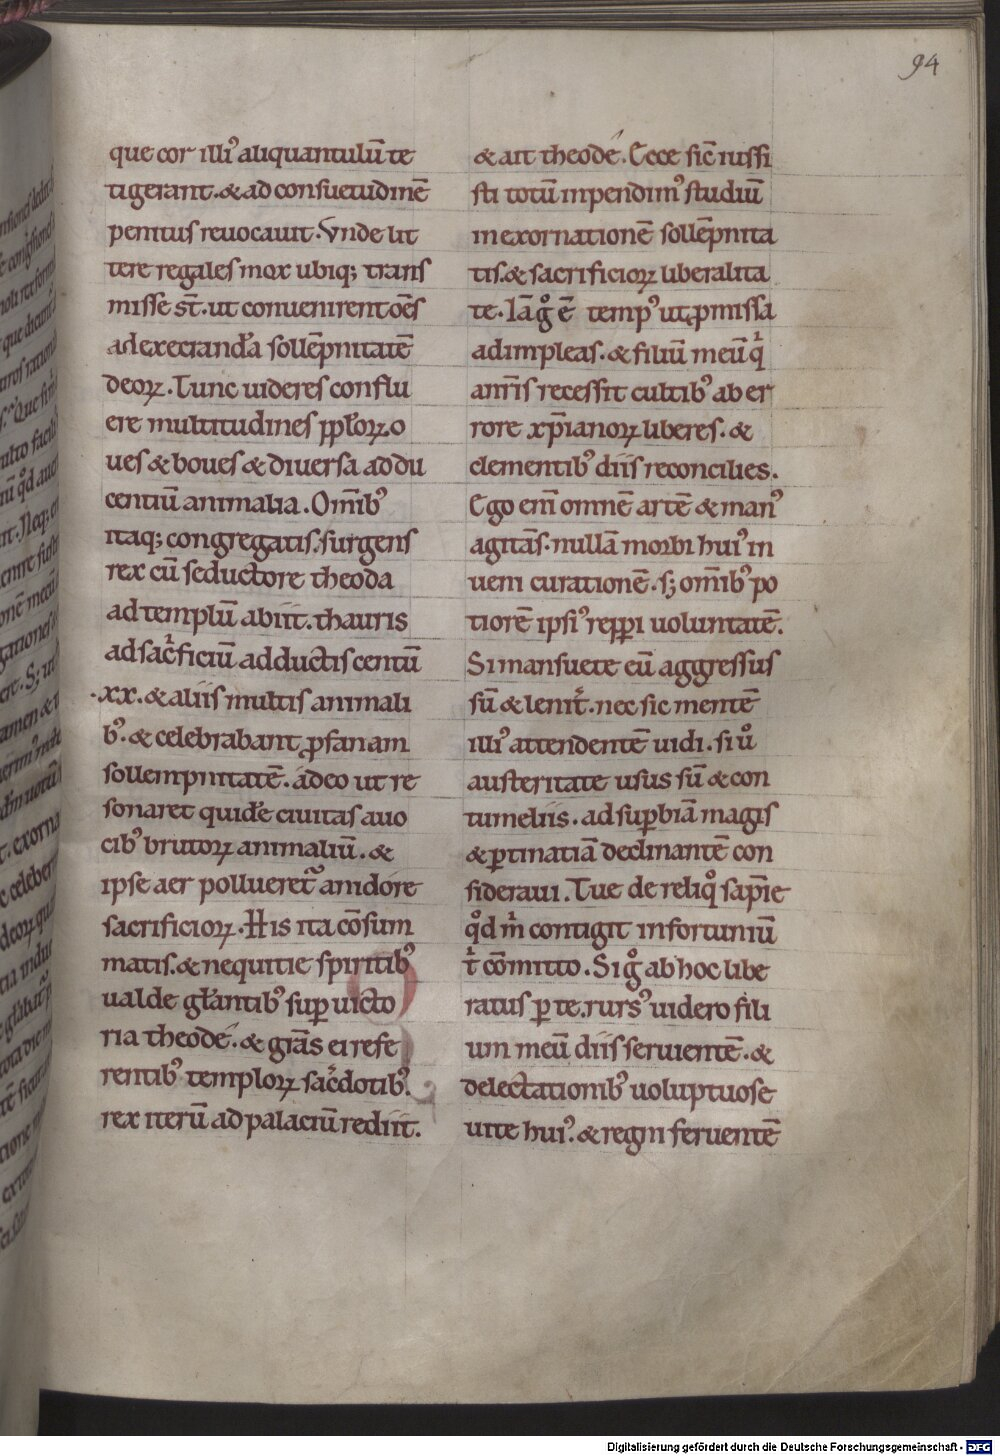 94
que cor illiꝰ aliquantulū te
tigerant. & ad consuetudinē
penitus reuocauit. Vnde lit
tere regales mox ubiq; trans
misse st̄. ut conuenirent oēs
ad execrandā sollēpnitatē
deoꝝ. Tunc uideres conflu
ere multitudines pploꝝ o
ues & boues & diuersa addu
centiū animalia. Om̄ibꝰ
itaq; congregatis. surgens
rex cū seductore theoda
ad templū abiit. thauris
ad sac͛ficiū adductis centū
.xx. & aliis multis animali
bꝰ. & celebrabant ꝓfanam
sollempnitatē. adeo ut re
sonaret quidē ciuitas a uo
cibꝰ brutoꝝ animaliū. &
ipse aer pollueret᷑ a nidore
sacrificioꝝ. His ita cōsum
matis. & nequitie spiritibꝰ
ualde gl̄antibꝰ suꝑ uicto
ria theode. & gr̄as ei refe
rentibꝰ temploꝝ sac͛dotibꝰ.
rex iterū ad palaciū rediit.
& ait theode. Ecce sic̄ iussi
sti totū inpendimꝰ studiū
in exornationē sollēpnita
tis. & sacrificioꝝ liberalita
te. Iā gͦ ē tempꝰ ut ꝓmissa
adimpleas. & filiū meū qͥ
a nr̄is recessit cultibꝰ ab er
rore xp̄ianoꝝ liberes. &
clementibꝰ diis reconcilies.
Ego eni omnē artē & manꝰ
agitās. nullā morbi huiꝰ in
ueni curationē. s; om̄ibꝰ po
tiorē ipsiꝰ repperi uoluntatē.
Si mansuete eū aggressus
sū & lenit᷑. nec sic mentē
illiꝰ attendentē uidi. si uͦ
austeritate usus sū & con
tumeliis. ad suꝑbiā magis
& ꝑtinatiā declinantē con
sideraui. Tue de reliqͦ sapīe
qͦd mͥ contigit infortuniū
t͛ cōmitto. Si gͦ ab hoc libe
ratus ꝑ te. rursꝰ uidero fili
um meū diis seruientē. &
delectationibꝰ uoluptuose
uite huiꝰ. & regni feruentē
Digitalisierung gefördert durch die Deutsche Forschungsgemeinschaft - DFG